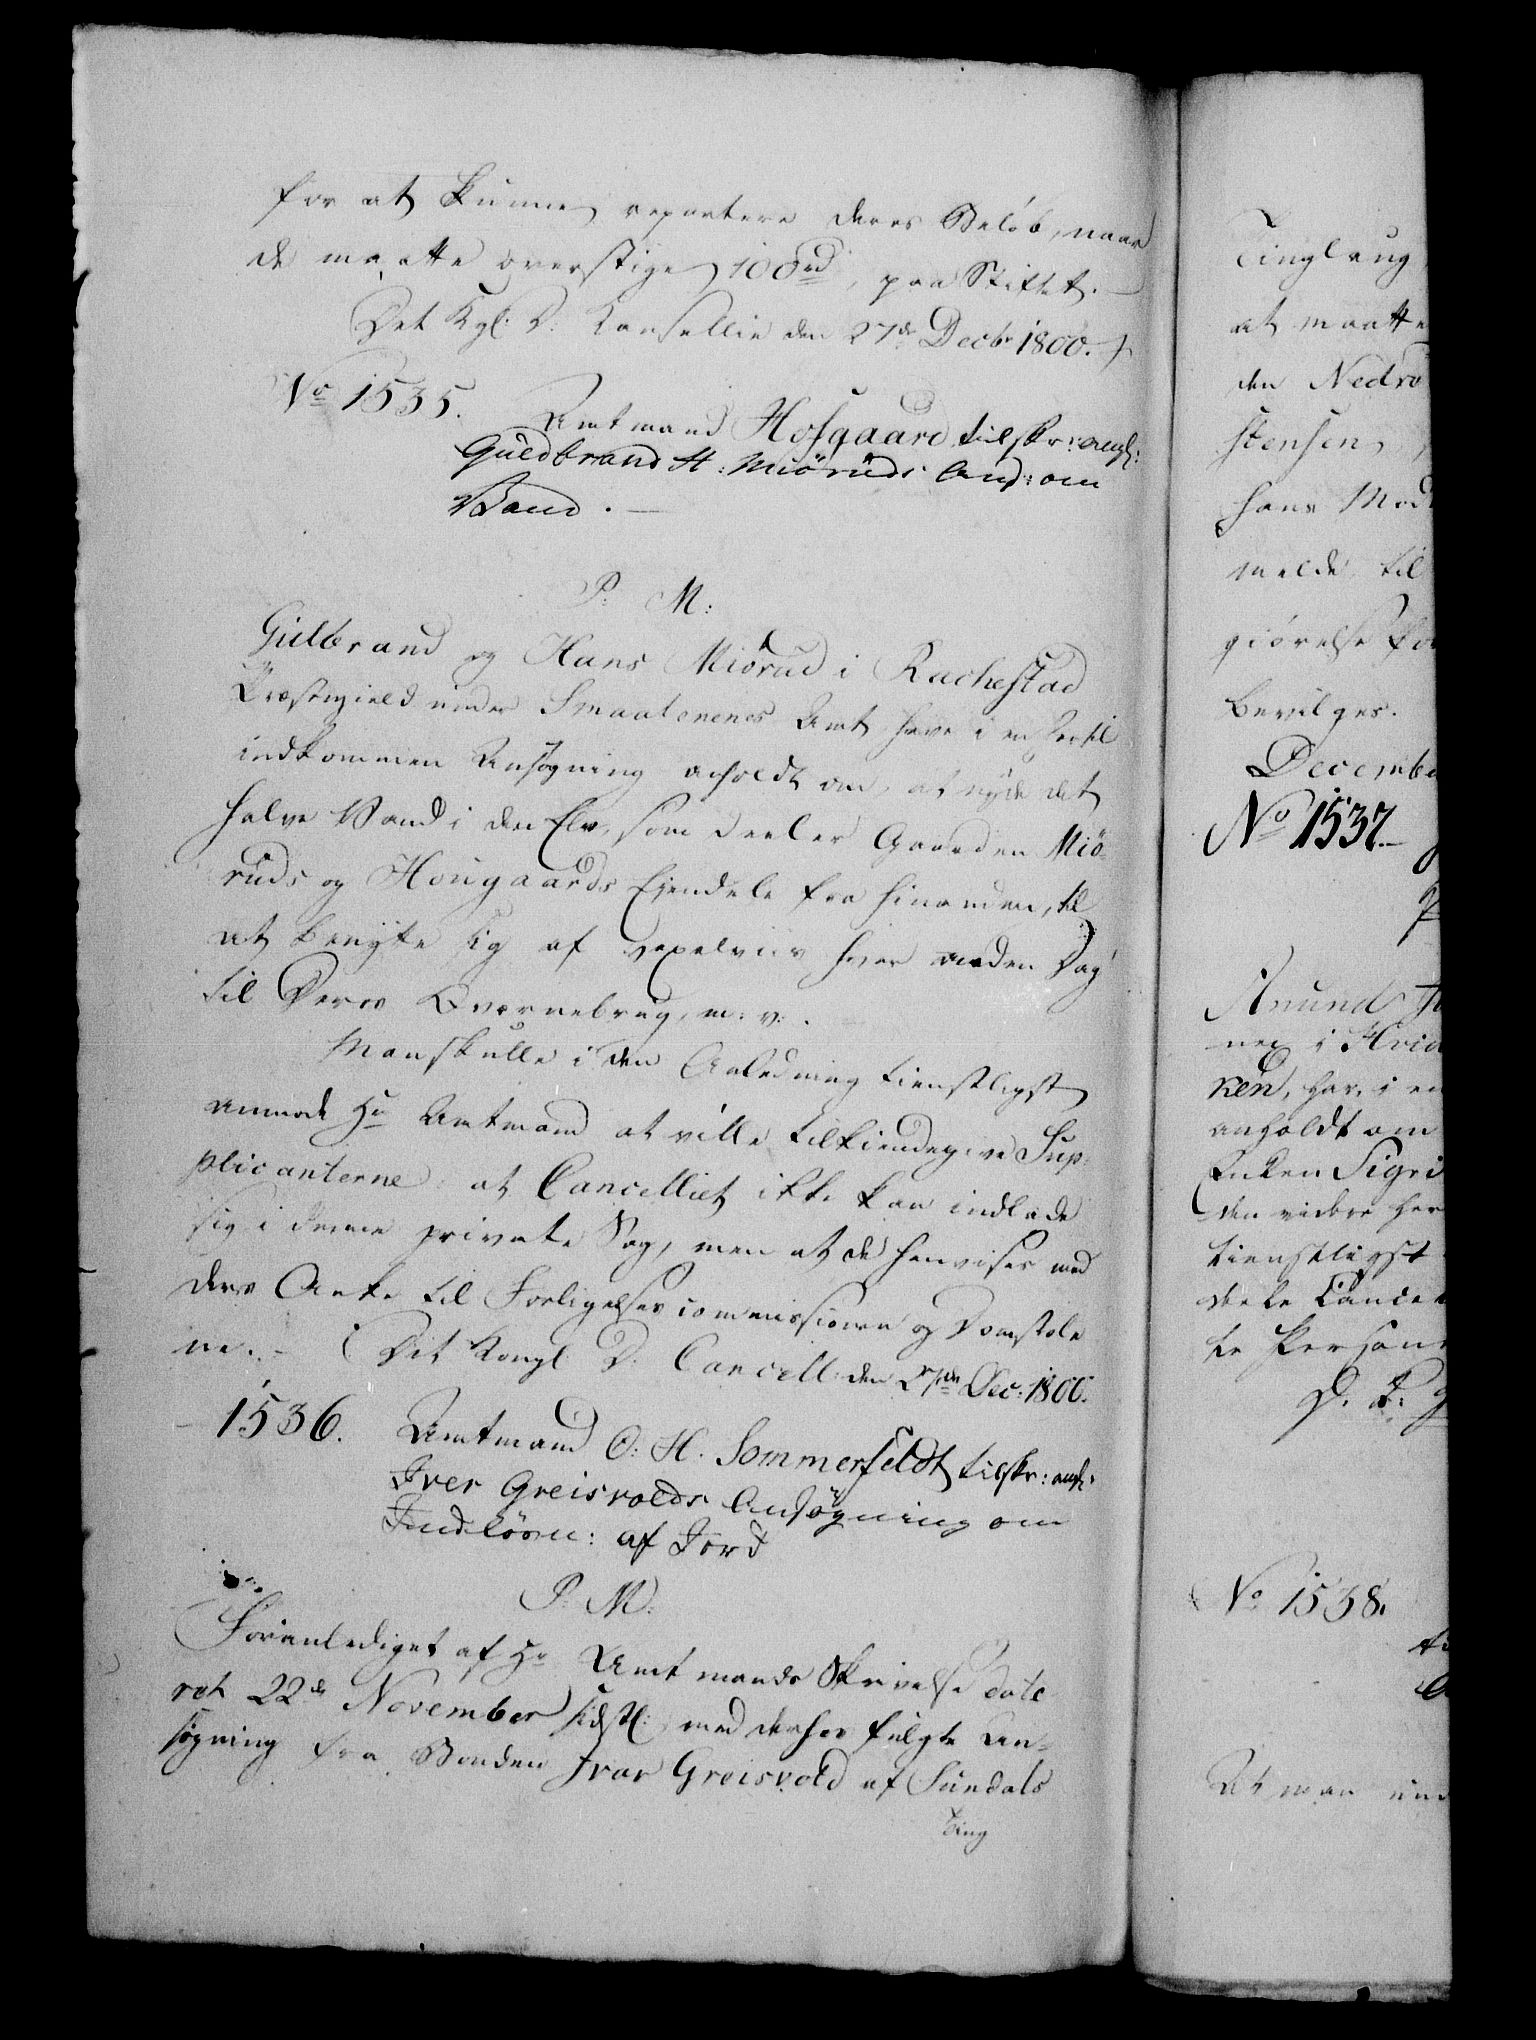 for at kunne repartere deres Beløb, naar
de maatte overstige 100 rd, paa Stiftet. —
Det Kgl: D: Kansellie den 27de Decbr 1800.
No 1535. Amtmand Hofgaard tilskr: ang:
Guldbrand H: Miöruds Ans: om
Vand. —
P: M:
Gulbrand og Hans Miörud i Rachestad
Præstegield under Smaalenenes Amt have i en hertil
indkommen Ansøgning anholdt om, at nyde det
halve Vand i den Elv, som deeler Gaarden Miö-
ruds og Hougaards Ejendele fra hinanden, til
at benytte sig af vexelviis hver anden Dag
til Deres Qværnebrug, m: v:.
Man skulle i den Anledning tienstligst
anmode Hr Amtmand at ville tilkiendegive Sup-
plicanterne: at Cancelliet ikke kan indlade
sig i denne private Sag, men at de henvises med
deres Anke til Forligelses commissionen og Domstole
ne. – Det Kongl D: Cancell: den 27de Dec: 1800.
1536. Amtmand O: H. Sommerfeldt tilskr: ang:
Iver Greisvolds Ansøgning om
Indlösn: af Jord
P: M:
Foranlediget af Hr Amtmands Skrivelse date
ret 22de November sidstl: med derhos fulgte An-
søgning fra Bonden Ivar Greisvold af Sundals
Ting
Tinglaug
at maatte
den Nedro
stensen,
hans Mod
melde til
giørelse for
bevilges.
Decembe
No 1537. –
Anund
nes i Hvid
ken, har, i en
anholdt om
Enken Sigri
den videre her
tienstligst
dette Cance
te Person
D. K: 
No 1538.
At man un